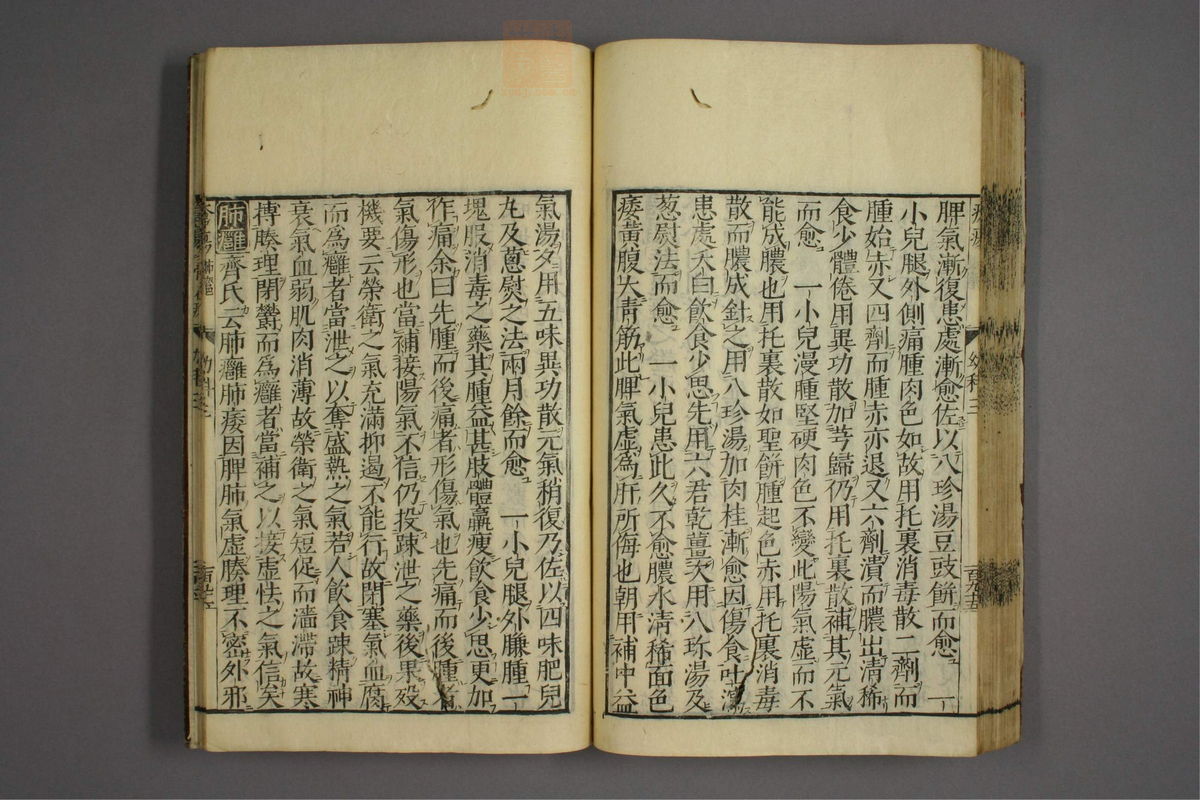 脾氣漸復患處漸愈佐以八珍湯豆豉餅而愈 一
小兒腿外側痛腫肉色如故用托裏消毒散二劑而
腫始赤又四劑而腫赤亦退又六劑潰而膿出清稀
食少體倦用異功散加芎歸仍用托裏散補其元氣
而愈 一小兒漫腫堅硬肉色不變此陽氣虛而不
能成膿也用托裏散如聖餅腫起色赤用托裏消毒
散而膿成針之用八珍湯加肉桂漸愈因傷食吐瀉
患處夭白飲食少思先用六君乾薑又用八珎湯及
葱熨法而愈 一小兒患此久不愈膿水清稀面色
痿黃腹大青筋此脾氣虛為肝所侮也朝用補中益
氣湯夕用五味異功散元氣稍復乃佐以四味肥兒
丸及蔥熨之法兩月餘而愈 一小兒腿外臁腫一
塊服消毒之藥其腫益甚肢體羸瘦飲食少思更加
作痛余曰先腫而後痛者形傷氣也先痛而後腫者
氣傷形也當補接陽氣不信仍投踈泄之藥後果歿
機要云榮衛之氣充滿抑遏不能行故閉塞氣血腐
而為癰者當泄之以奪盛熱之氣若人飲食踈精神
衰氣血弱肌肉消薄故榮衛之氣短促而濇滯故寒
摶腠理閉鬱而為癰者當補之以接虛怯之氣信矣
肺癰 齊氏云肺癰肺痿因脾肺氣虛腠理不密外邪
幼科三